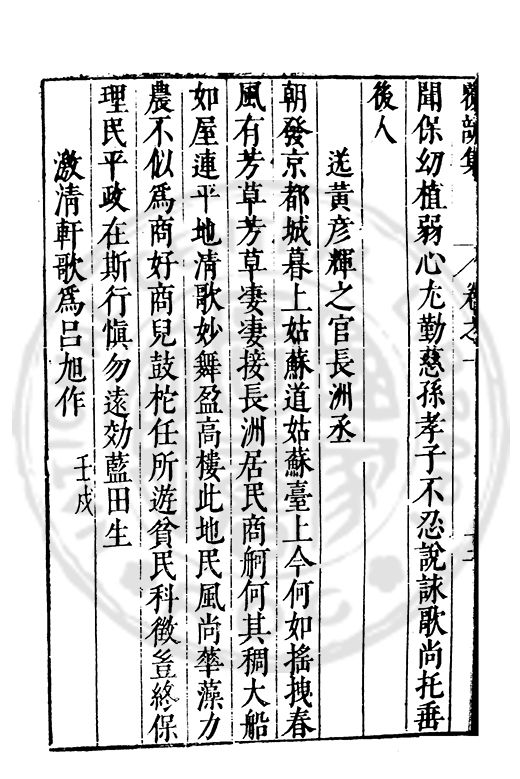 集
卷之
聞保幼植弱心尤勤慈孫孝子不忍說詠歌尚托垂
後人
送黃彥輝之官長洲丞
朝發京都城暮上姑蘇道姑蘇臺上今何如搖拽春
風有芳草芳草凄凄接長洲居民商舸何其稠大船
如屋連平地清歌妙舞盈高樓此地民風尚華藻力
農不似爲商好商兒鼓柁任所遊貧民科徵豈終保
理民平政在斯行愼勿遠効藍田生
激清軒歌爲呂旭作
壬戌